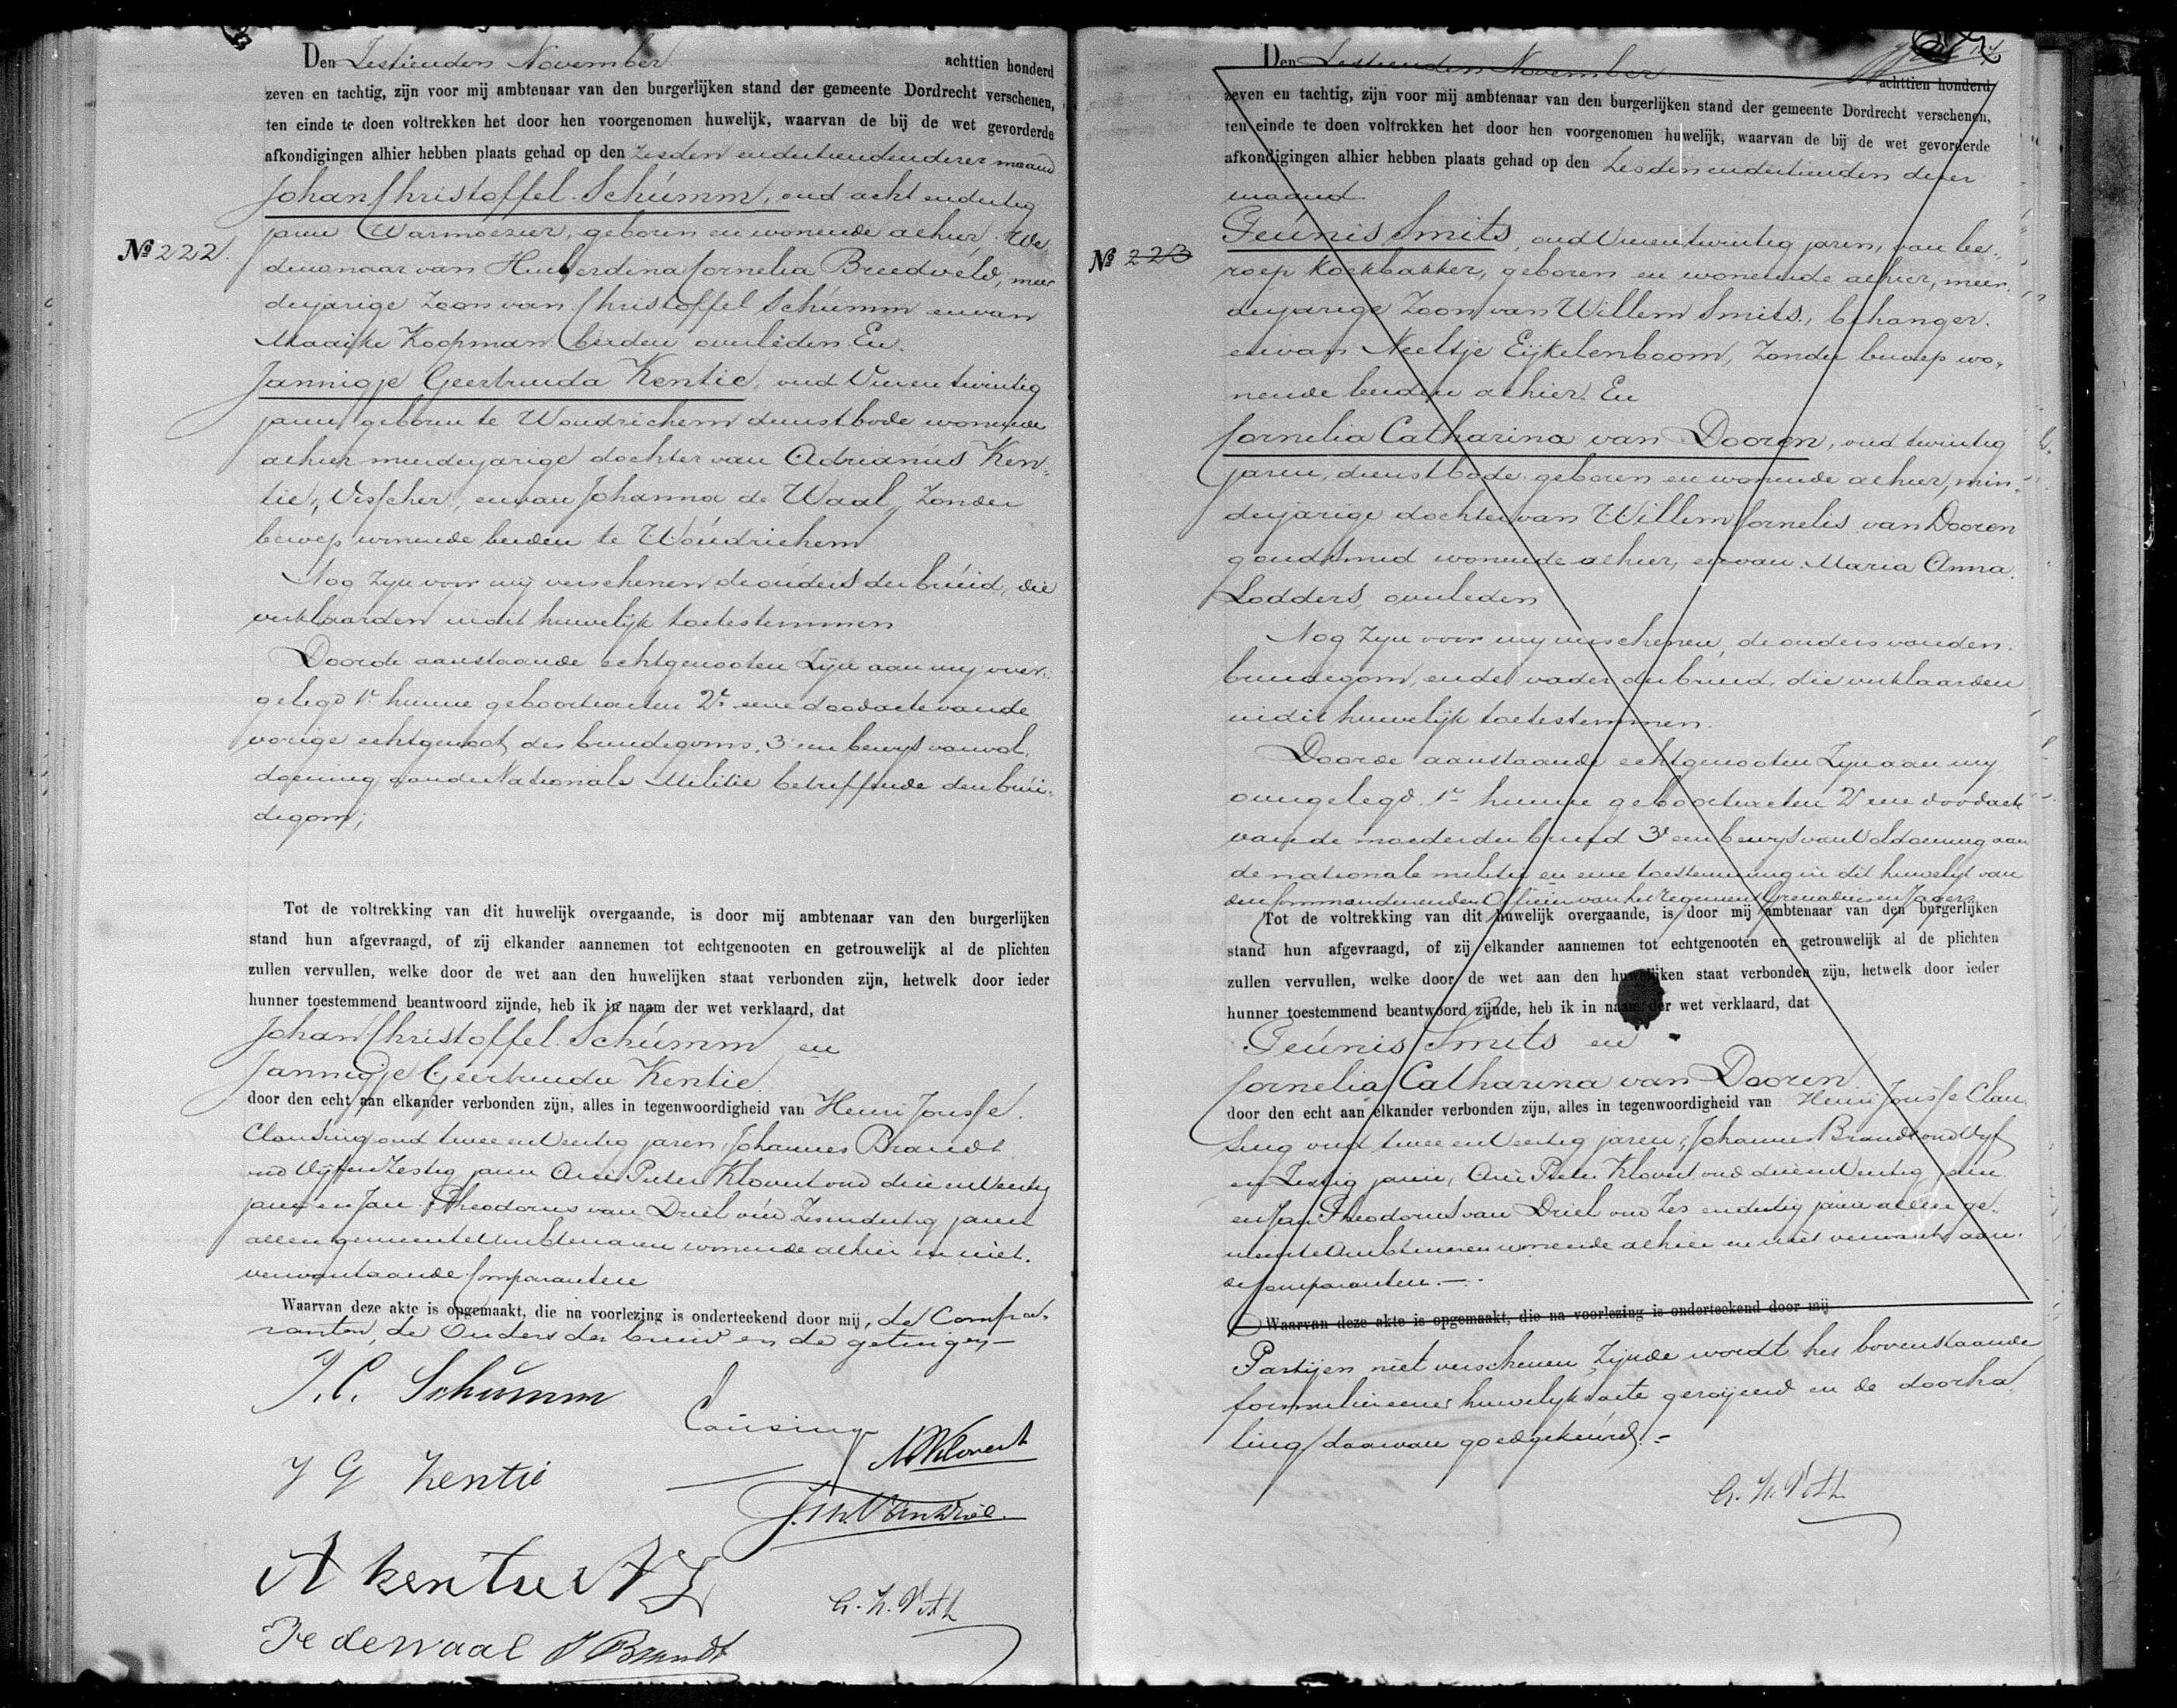 Den Zestienden November achttien honderd
zeven en tachtig, zijn voor mij ambtenaar van den burgerlijken stand der gemeente Dordrecht verschenen,
ten einde te doen voltrekken het door hen voorgenomen huwelijk, waarvan de bij de wet gevorderde
afkondigingen alhier hebben plaats gehad op den zesden en dertienden dezer maand
Johan Christoffel Schumm, oud acht en dertig
jaren Warmoezier, geboren en wonende alhier, We-
No 222.
duwnaar van Huiberdina Cornelia Breedveld, meer
derjarige Zoon van Christoffel Schumm en van
Maaijke Koopman beiden overleden. En
Jannigje Geertruida Kentie, oud Vierentwintig
jaren geboren te Woudrichem dienstbode wonende
alhier meerderjarige dochter van Adrianus Ken-
tie, Visscher, en van Johanna de Waal, Zonder
beroep wonende beiden te Woudrichem
Nog Zijn voor mij verschenen de ouders der bruid, die
verklaarden in dit huwelijk toetestemmen
Door de aanstaande echtgenooten Zijn aan mij over-
gelegd 1e hunne geboorteacten 2e eene doodacte van de
vorige echtgenoot des bruidegoms, 3e een bewijs van vol-
doening aan de Nationale Militie betreffende den brui-
degom;
Tot de voltrekking van dit huwelijk overgaande, is door mij ambtenaar van den burgerlijken
stand hun afgevraagd, of zij elkander aannemen tot echtgenooten en getrouwelijk al de plichten
zullen vervullen, welke door de wet aan den huwelijken staat verbonden zijn, hetwelk door ieder
hunner toestemmend beantwoord zijnde, heb ik in naam der wet verklaard, dat
Johan Christoffel Schumm en
Jannigje Geertruida Kentie
door den echt aan elkander verbonden zijn, alles in tegenwoordigheid van Henri Jousse
Clausing oud twee en Veertig jaren, Johannes Brandt
oud Vijf en Zestig jaren Arie Pieter Klovert oud drie en Veertig
jaren en Jan Theodorus van Driel oud Zes en dertig jaren
allen gemeente ambtenaren wonende alhier en niet
verwant aan de Comparanten
Waarvan deze akte is opgemaakt, die na voorlezing is onderteekend door mij, de Compa-
ranten, de Ouders der bruid en de getuigen
J. C. Schumm
Clausing
J G Kentie
AP Klovert
J. Th. van Driel
A Kentie AZ
Je de Waal J Brandt
Den Zestienden November achttien honderd
zeven en tachtig, zijn voor mij ambtenaar van den burgerlijken stand der gemeente Dordrecht verschenen,
ten einde te doen voltrekken het door hen voorgenomen huwelijk, waarvan de bij de wet gevorderde
afkondigingen alhier hebben plaats gehad op den Zesden en dertienden dezer
maand
Teunis Smits, oud Vierentwintig jaren, van be-
No 223
roep Koekbakker, geboren en wonende alhier, meer-
derjarige Zoon van Willem Smits, behanger
en van Neeltje Eijkelenboom, Zonder beroep wo-
nende beiden alhier. En
Cornelia Catharina van Dooren, oud twintig
jaren, dienstbode geboren en wonende alhier, min-
derjarige dochter van Willem Cornelis van Dooren
goudsmid wonende alhier, en van Maria Anna
Lodders, overleden
Nog Zijn voor mij verschenen, de ouders van den
bruidegom, en de vader der bruid, die verklaarden
in dit huwelijk toetestemmen.
Door de aanstaande echtgenooten Zijn aan mij
overgelegd 1e hunne geboorteacten 2e eene doodacte
van de moeder der bruid 3e een bewijs van Voldoening aan
de nationale militie en eene toestemming in dit huwelijk van
den Commandeerenden Officier van het regiment Grenadiers en Jagers
Tot de voltrekking van dit huwelijk overgaande, is door mij ambtenaar van den burgerlijken
stand hun afgevraagd, of zij elkander aannemen tot echtgenooten en getrouwelijk al de plichten
zullen vervullen, welke door de wet aan den huwelijken staat verbonden zijn, hetwelk door ieder
hunner toestemmend beantwoord zijnde, heb ik in naam der wet verklaard, dat
Teunis Smits en
Cornelia Catharina van Dooren
door den echt aan elkander verbonden zijn, alles in tegenwoordigheid van Henri Jousse Clau
sing oud twee en Veertig jaren, Johannes Brandt oud Vijf
en Zestig jaren, Arie Pieter Klovert oud drie en Veertig jaren
en Jan Theodorus van Driel oud Zes en dertig jaren allen ge-
meente Ambtenaren wonende alhier en niet verwant aan
de Comparanten.
Waarvan deze akte is opgemaakt, die na voorlezing is onderteekend door mij
Partijen niet verschenen Zijnde wordt het bovenstaande
formulier eener huwelijksacte geroijeerd en de doorha
ling daarvan goedgekeurd.